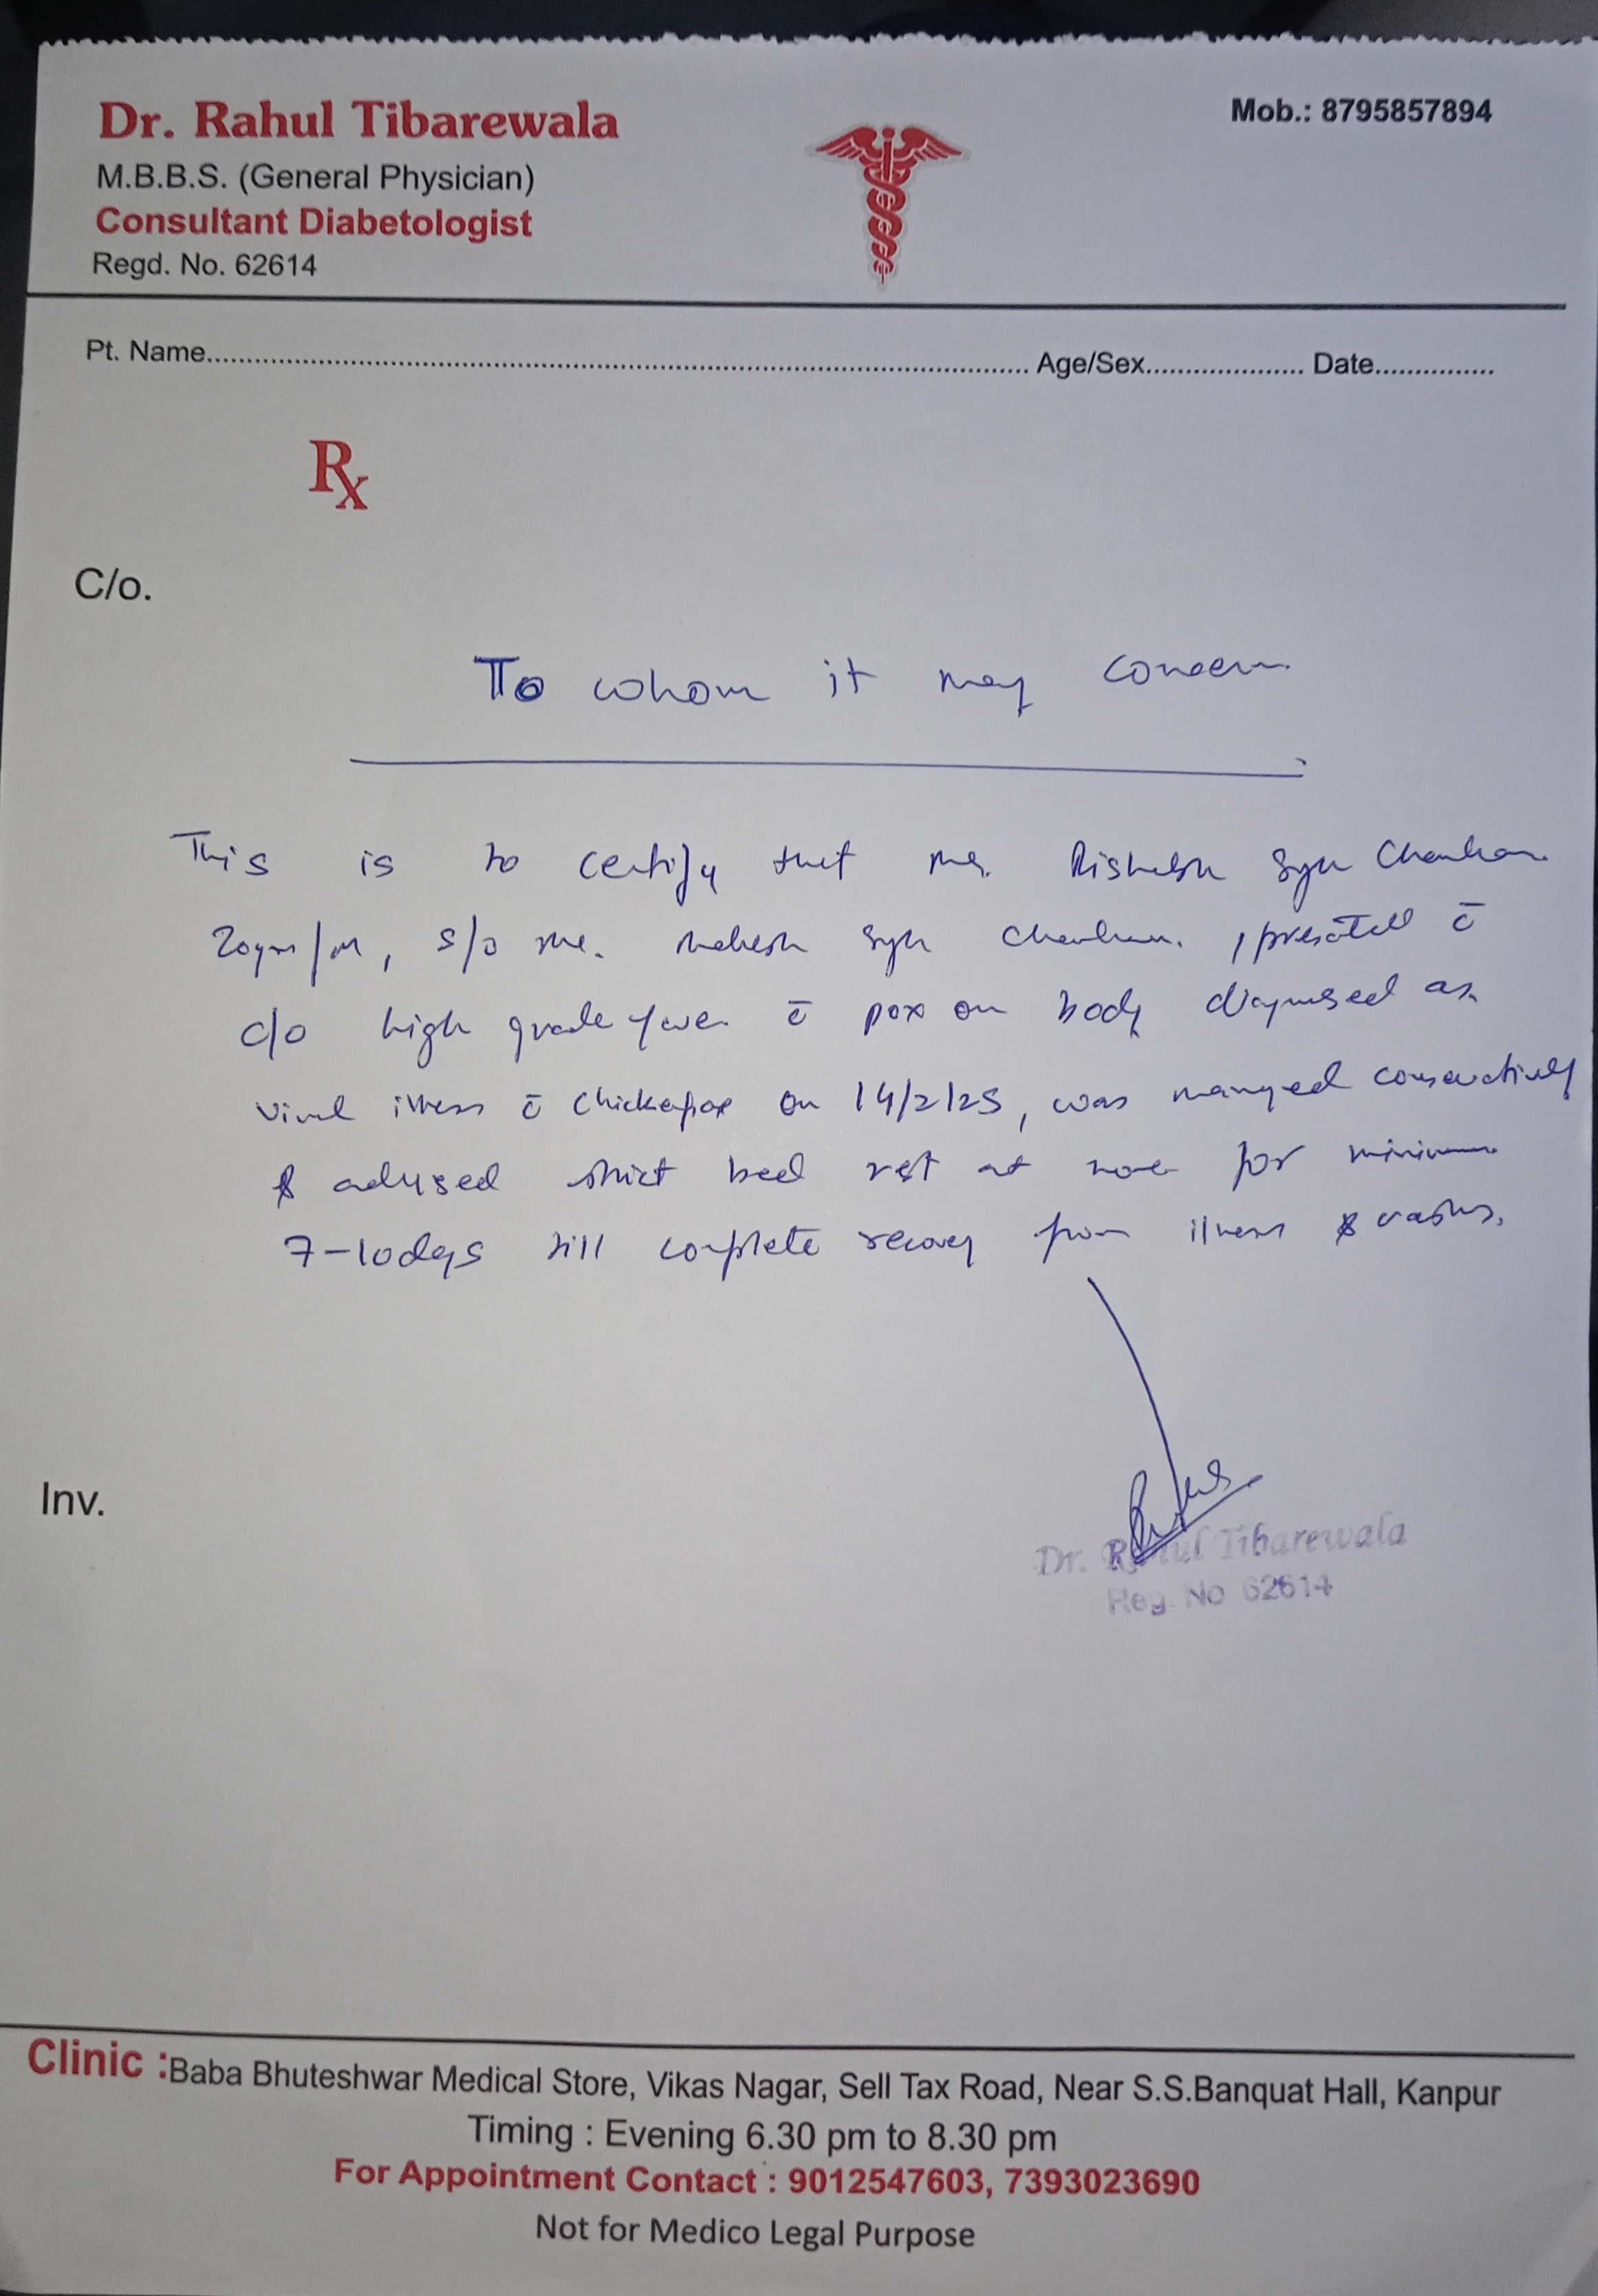 Dr. Rahul Tibarewala
M.B.B.S. (General Physician)
Consultant Diabetologist
Regd. No. 62614
Mob.: 8795857894
Pt. Name.................... Age/Sex.................... Date...............
Rx
C/o.
To whom it may concern
This is to certify that Mr. Chauhan
20yrs/M, s/o Mr. Mahesh Chauhan, presented c̄
c/o high grade fever c̄ pox on body diagnosed as
viral illness c̄ Chickenpox on 14/2/25, was managed conservatively
& advised strict bed rest at home for minimum
7-10days till complete recovery from illness & rashes.
Inv.
Dr. Rahul Tibarewala
Reg. No 62614
Clinic : Baba Bhuteshwar Medical Store, Vikas Nagar, Sell Tax Road, Near S.S.Banquat Hall, Kanpur
Timing : Evening 6.30 pm to 8.30 pm
For Appointment Contact : 9012547603, 7393023690
Not for Medico Legal Purpose